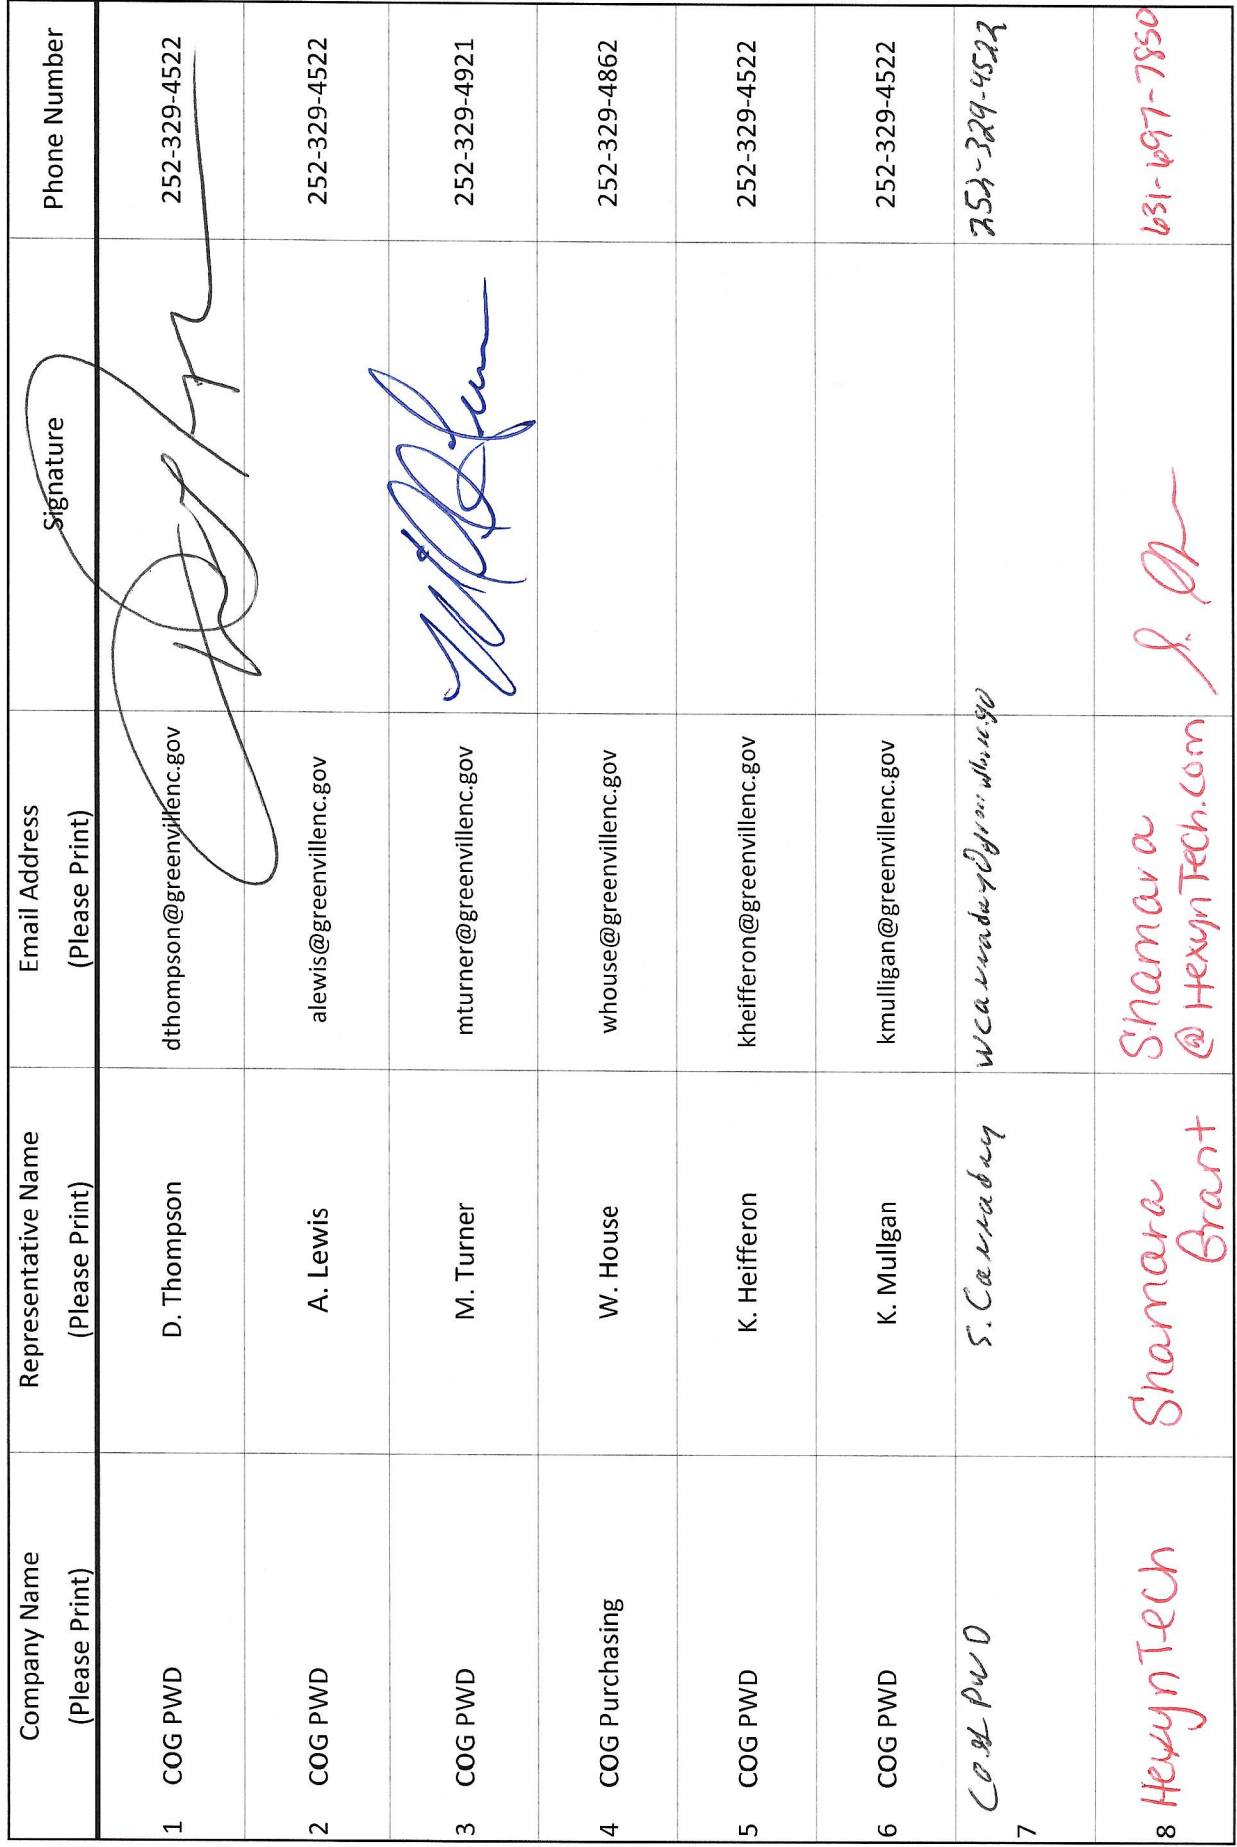 Company Name (Please Print) Representative Name (Please Print) Email Address (Please Print) Signature Phone Number
1 COG PWD D. Thompson dthompson@greenvillenc.gov 252-329-4522
2 COG PWD A. Lewis alewis@greenvillenc.gov 252-329-4522
3 COG PWD M. Turner mturner@greenvillenc.gov 252-329-4921
4 COG Purchasing W. House whouse@greenvillenc.gov 252-329-4862
5 COG PWD K. Heifferon kheifferon@greenvillenc.gov 252-329-4522
6 COG PWD K. Mullgan kmulligan@greenvillenc.gov 252-329-4522
7 PWD S. Cannaday 252-329-4522
8 HexynTech Shamara Brant Shamara @HexynTech.com 631-697-7850